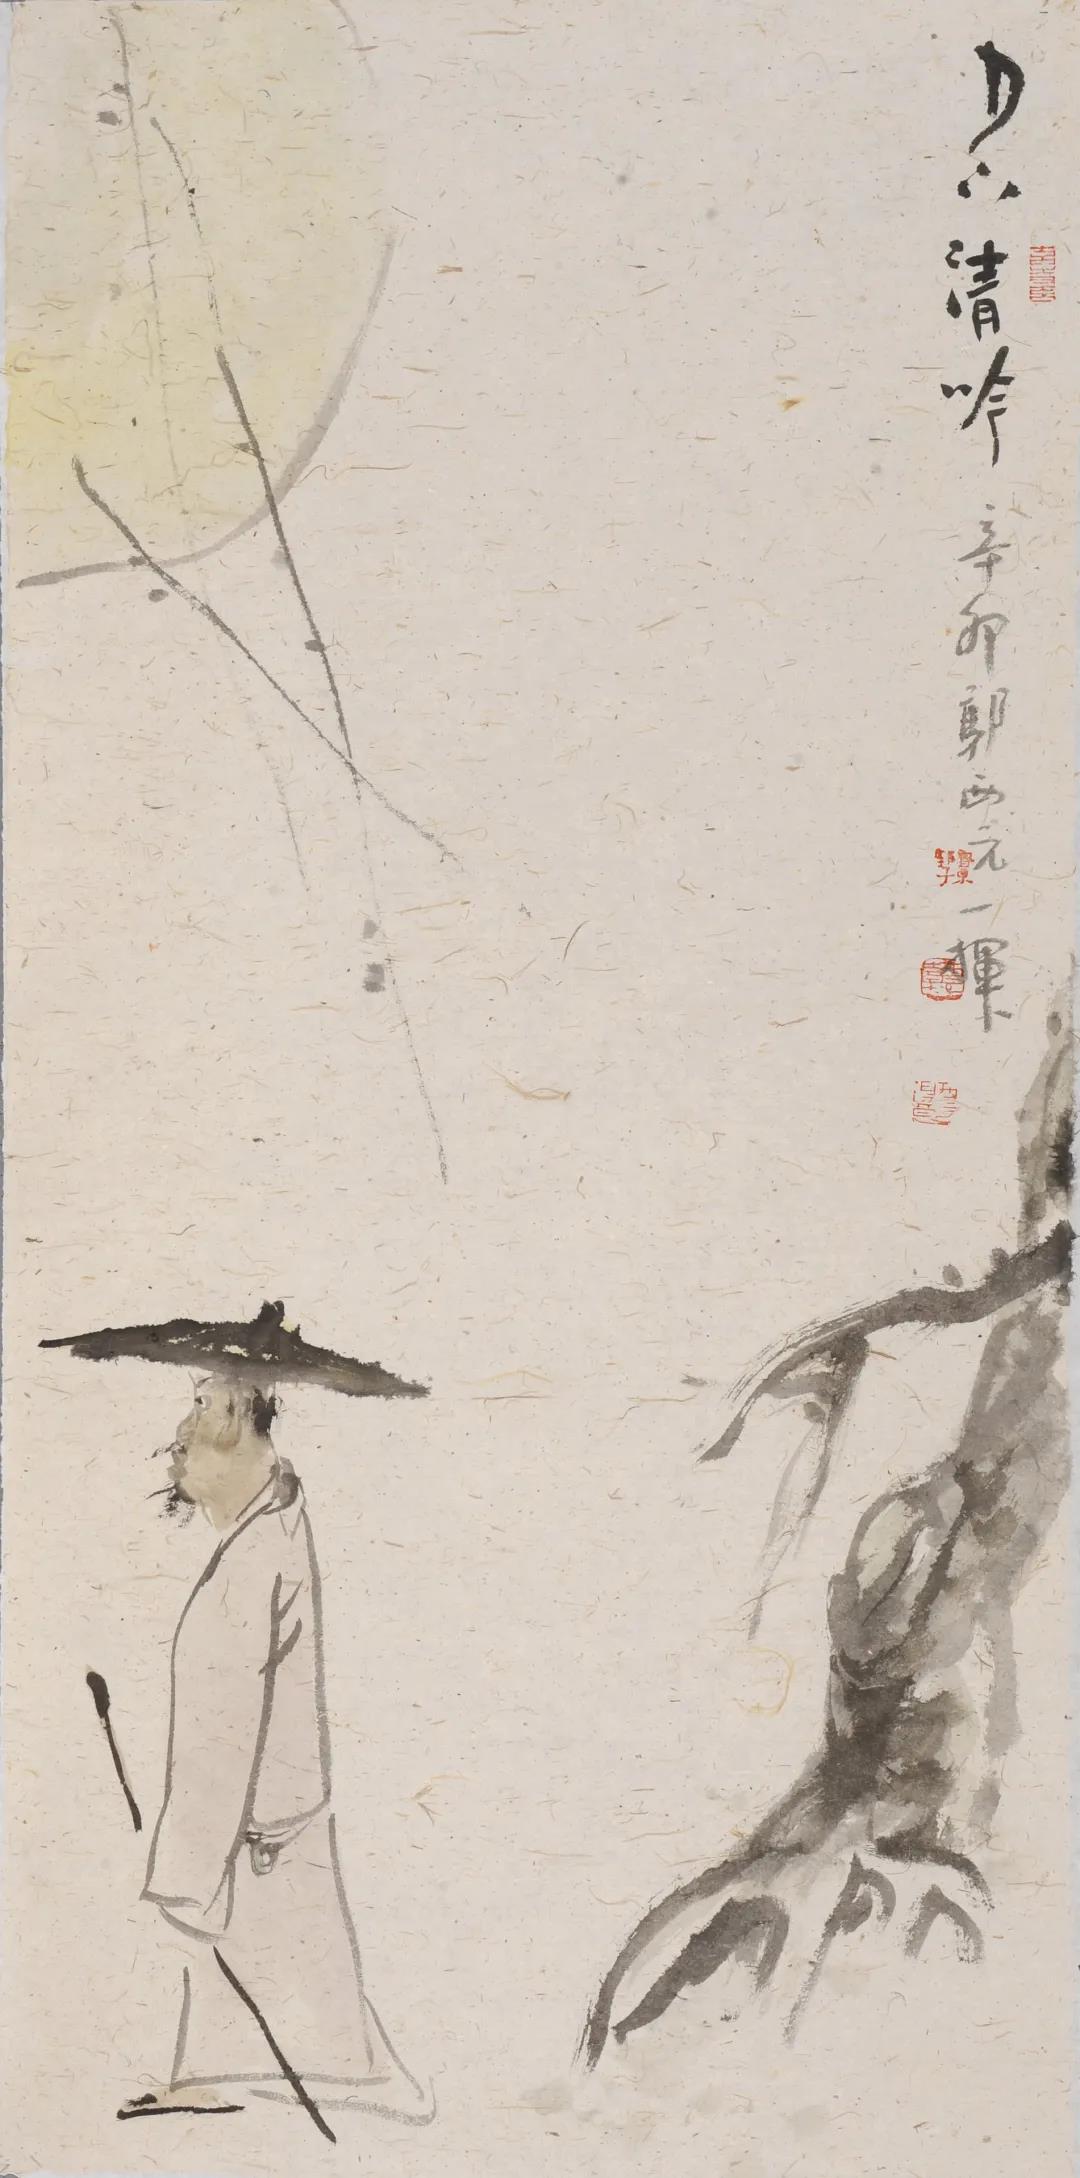 月下清吟
辛卯郭西元一挥